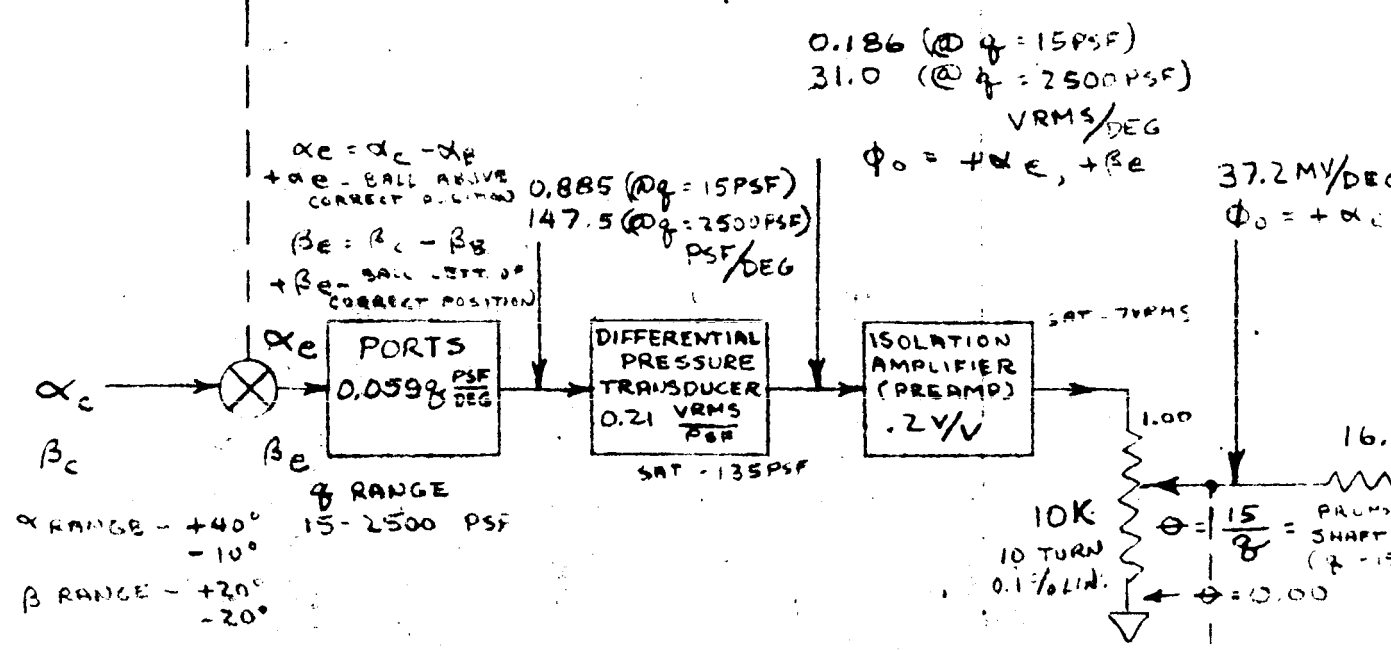 0.186 (@ q = 15PSF)
31.0 (@ q = 2500PSF)
VRMS/DEG
ϕo = +αe, +βe
37.2 MV/DEG
ϕo = + α
αe = αc - αB
+αe - BALL ABOVE
CORRECT POSITION
βe = βc - βB
+βe - BALL LEFT OF
CORRECT POSITION
0.885 (@q = 15PSF)
147.5 (@q = 2500PSF)
PSF/DEG
SAT - 7VRMS
αe
PORTS
0.059q PSF/DEG
DIFFERENTIAL
PRESSURE
TRANSDUCER
0.21 VRMS/PSF
ISOLATION
AMPLIFIER
(PREAMP)
.2 V/V
αc
βc
βe
SAT - 135PSF
1.00
16.
q RANGE
15-2500 PSF
α RANGE - +40°
-10°
β RANGE - +20°
-20°
10K
10 TURN
0.1% LIN.
θ = 15/q =
SHAFT
(q - 15
θ = 0.00